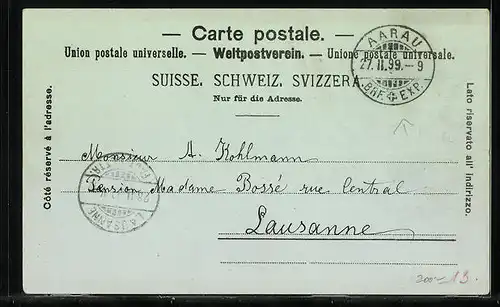 — Carte postale. —
Union postale universelle. — Weltpostverein. — Unione postale universale.
SUISSE. SCHWEIZ. SVIZZERA.
Nur für die Adresse.
AARAU
27.II.99.-9
BRF. EXP.
Côté réservé à l'adresse.
Lato riservato all' indirizzo.
Monsieur A. Kohlmann
Pension Madame Bossé rue Central
Lausanne
LAUSANNE
13.